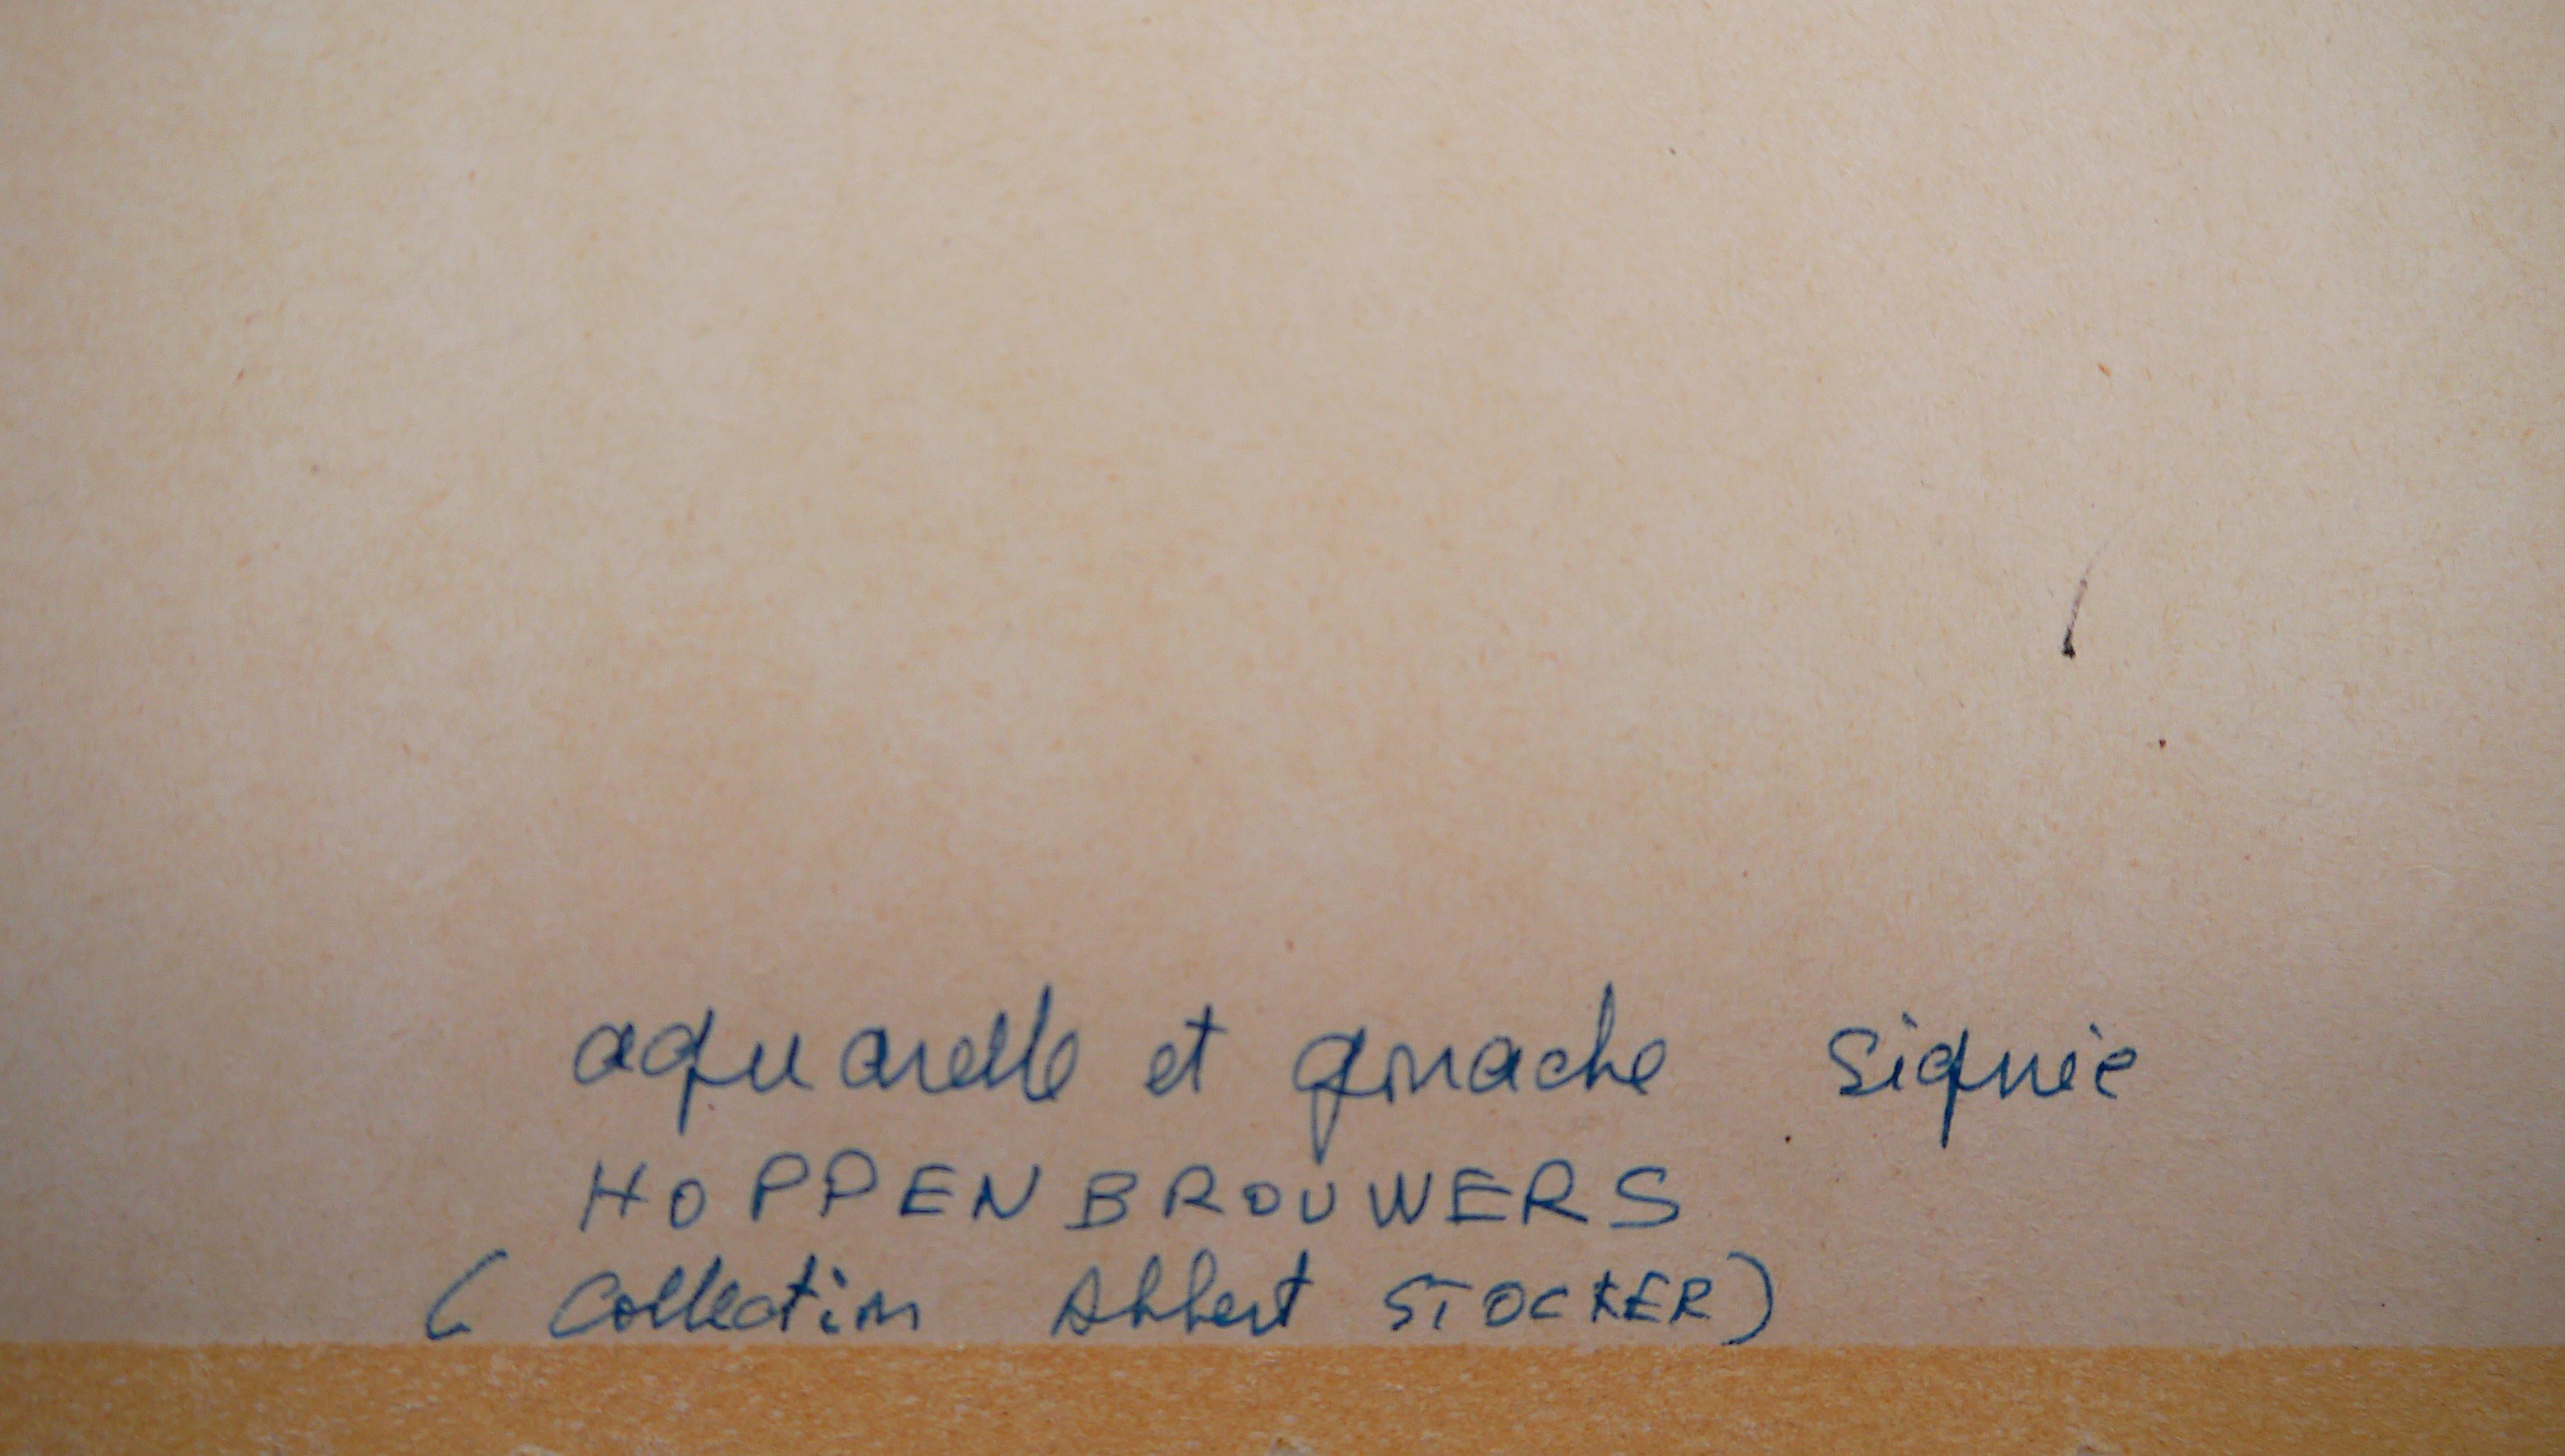 aquarelle et gouache signée
HOPPENBROUWERS
( Collection Albert STOCKER)